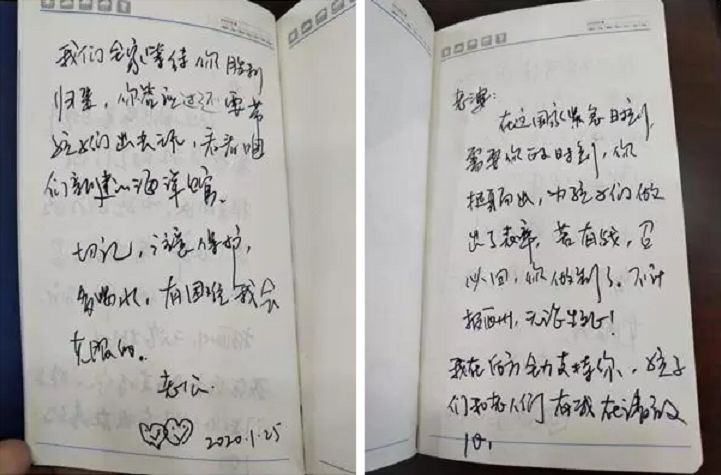 我们全家等待你胜利
归来，你答应过还要带
孩子们出去玩，看看咱
们新建的海洋馆.
切记，注意保护，
多喝水，有困难我会
克服的。
老公
2020.1.25
老婆：
在这国家紧急时刻，
需要你的时刻，你
挺身而出，为孩子们做
出了表率，若有战，召
必回，你做到了。不计
报酬，无论生死！
我在后方全力支持你、孩子
们和老人们有我在请放
心，